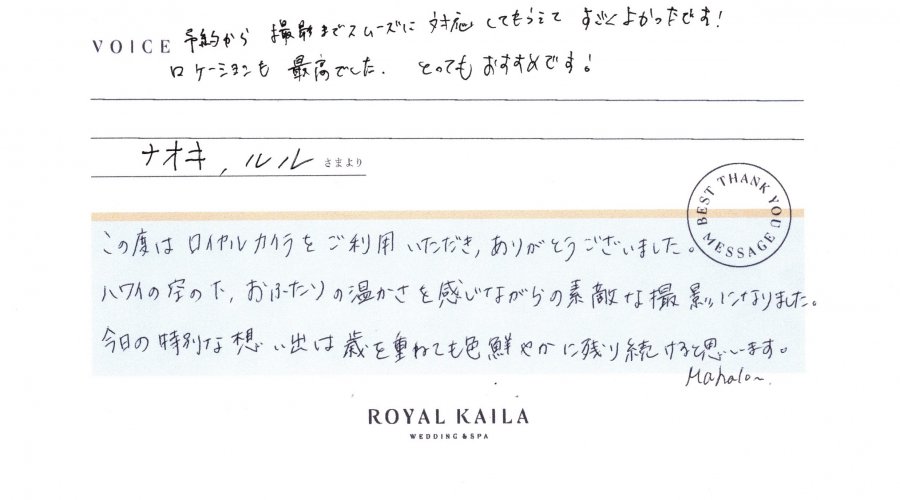 VOICE 予約から 撮影までスムーズに 対応してもらえて すごくよかったです！
ロケーションも 最高でした. とってもおすすめです！
ナオキ, ルル さまより
BEST THANK YOU MESSAGE
この度は ロイヤルカイラを ご利用 いただき, ありがとうございました。
ハワイの空の下, おふたりの温かさを感じながらの素敵な撮影になりました。
今日の特別な想い出は歳を重ねても色鮮やかに残り続けると思います。
Mahalo~
ROYAL KAILA
WEDDING & SPA